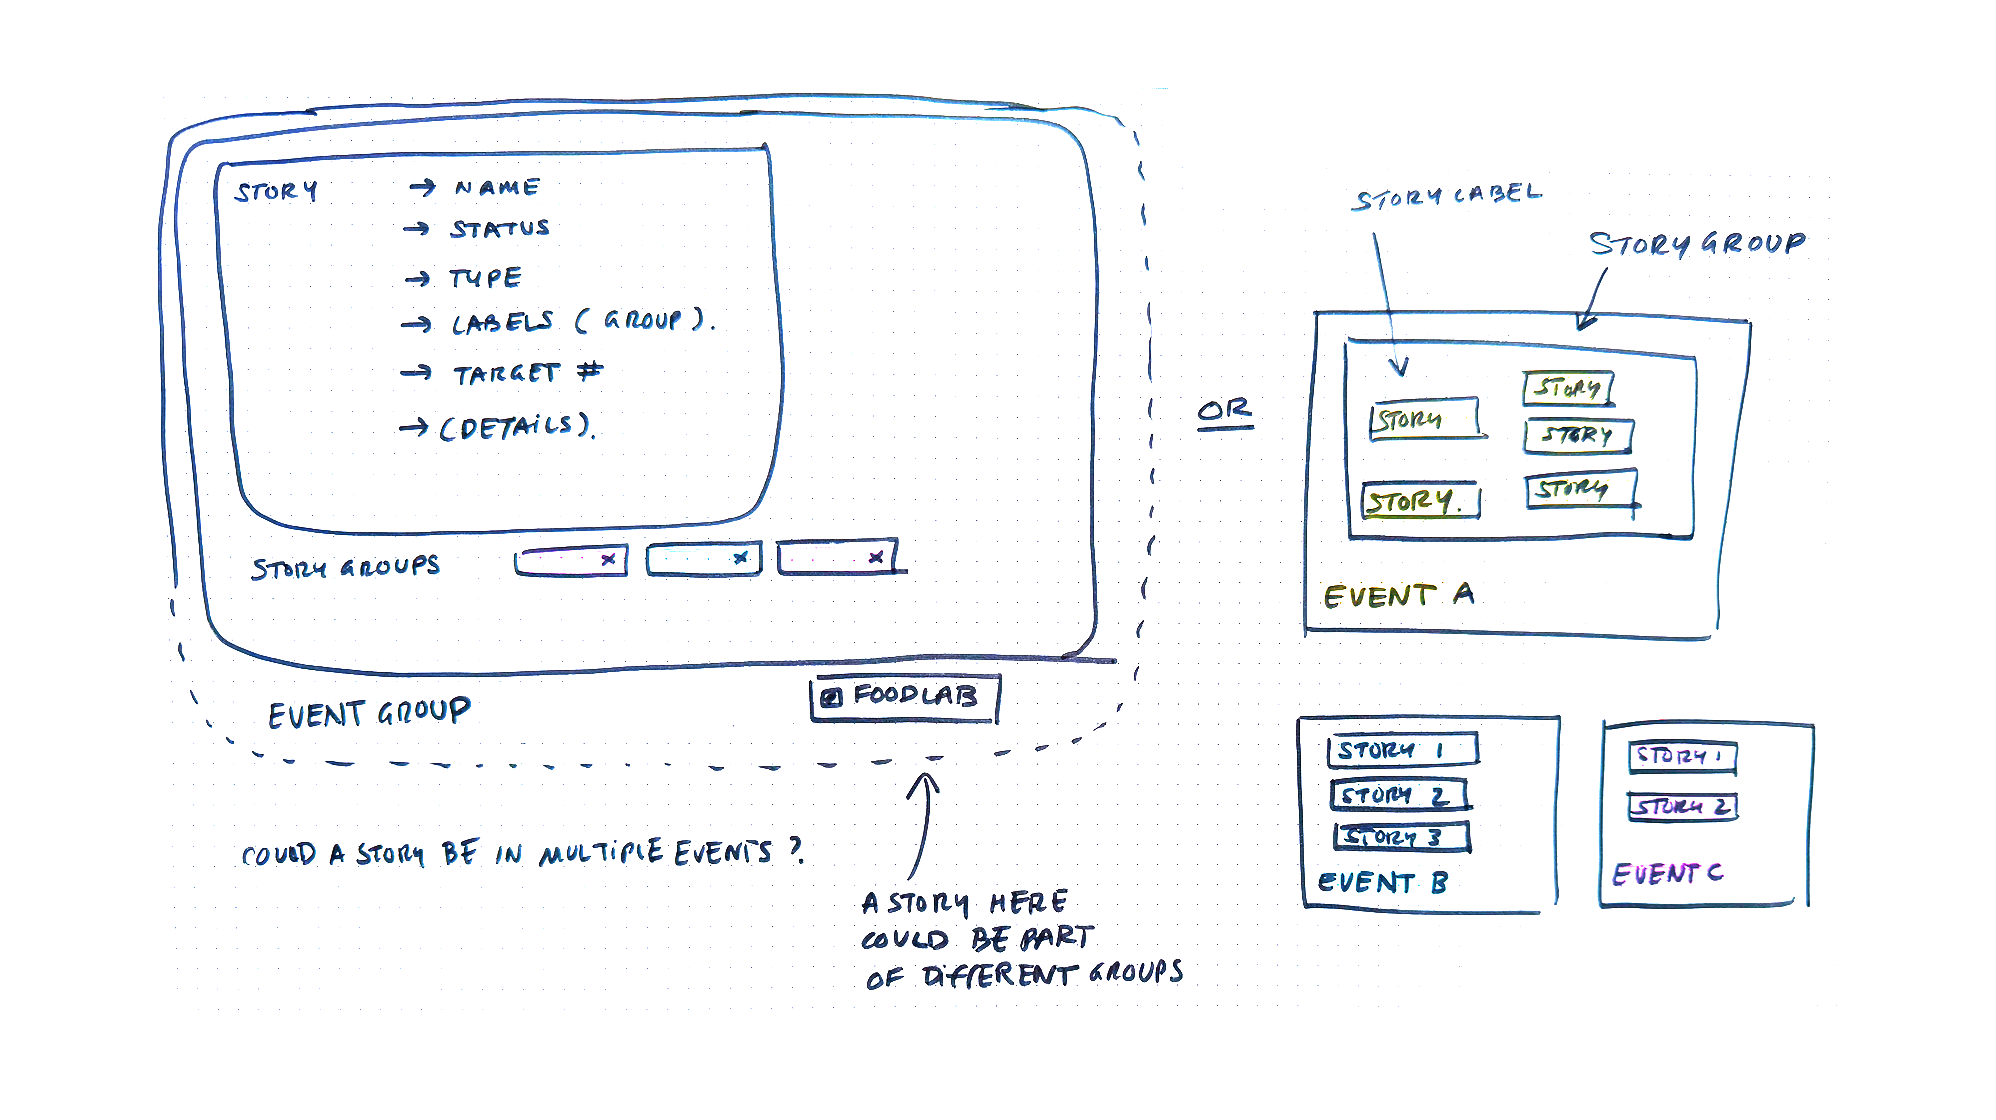 STORY → NAME
→ STATUS
→ TYPE
→ LABELS (GROUP).
→ TARGET #
→ (DETAILS).
STORY GROUPS x x x
EVENT GROUP
FOODLAB
COULD A STORY BE IN MULTIPLE EVENTS?
A STORY HERE
COULD BE PART
OF DIFFERENT GROUPS
OR
STORY LABEL
STORY GROUP
STORY
STORY.
STORY
STORY
STORY
EVENT A
STORY 1
STORY 2
STORY 3
EVENT B
STORY 1
STORY 2
EVENT C